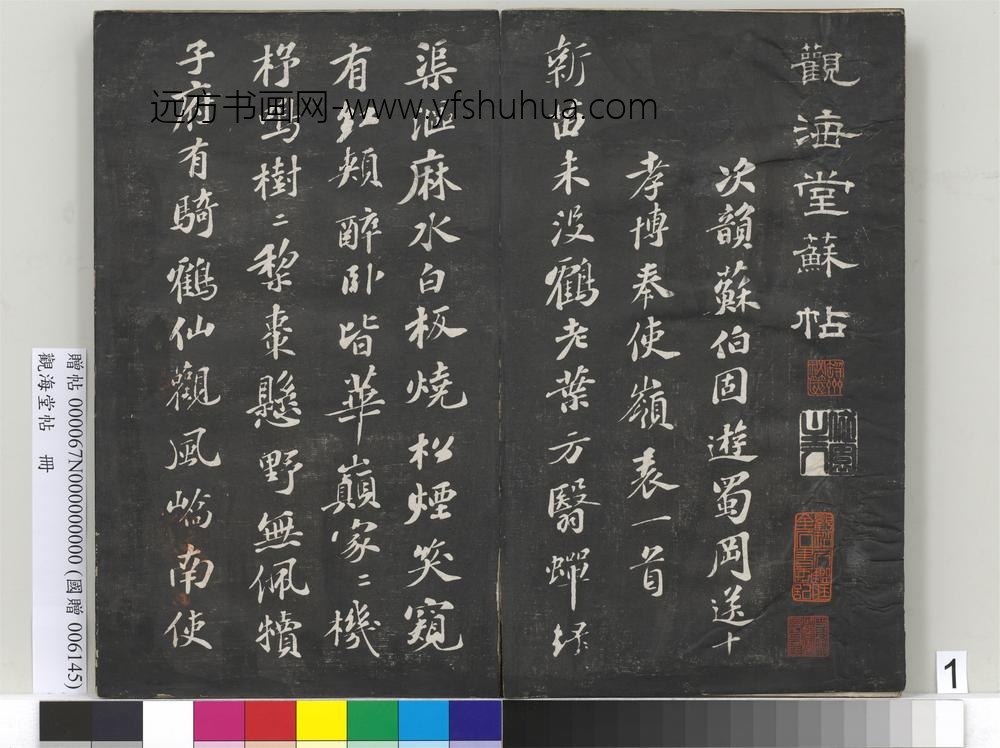 觀海堂蘇帖
次韻蘇伯固遊蜀岡送十
孝博奉使嶺表一首
新苗未没鶴老葉方翳蟬綠
渠漚麻水白板燒松煙笑窺
有紅頰醉卧皆華巔家二機
杼鳴樹二棃棗懸野無佩犢
子府有騎鶴仙觀風嶠南使
远方书画网-www.yfshuhua.com
贈帖 000067N000000000 (國贈 006145)
觀海堂帖 冊
1